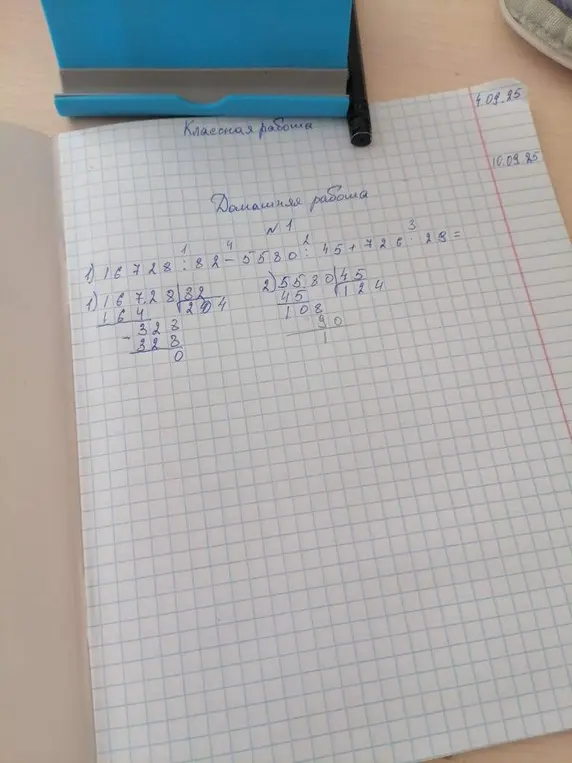 4.09.25
Классная работа
10.09.25
Домашняя работа
№ 1
1 4 2 3
1) 16728 : 82 - 5580 : 45 + 726 : 29 =
1) 16728 82 2) 5580 45
164 204 45 124
328 108
- 328 90
0 1